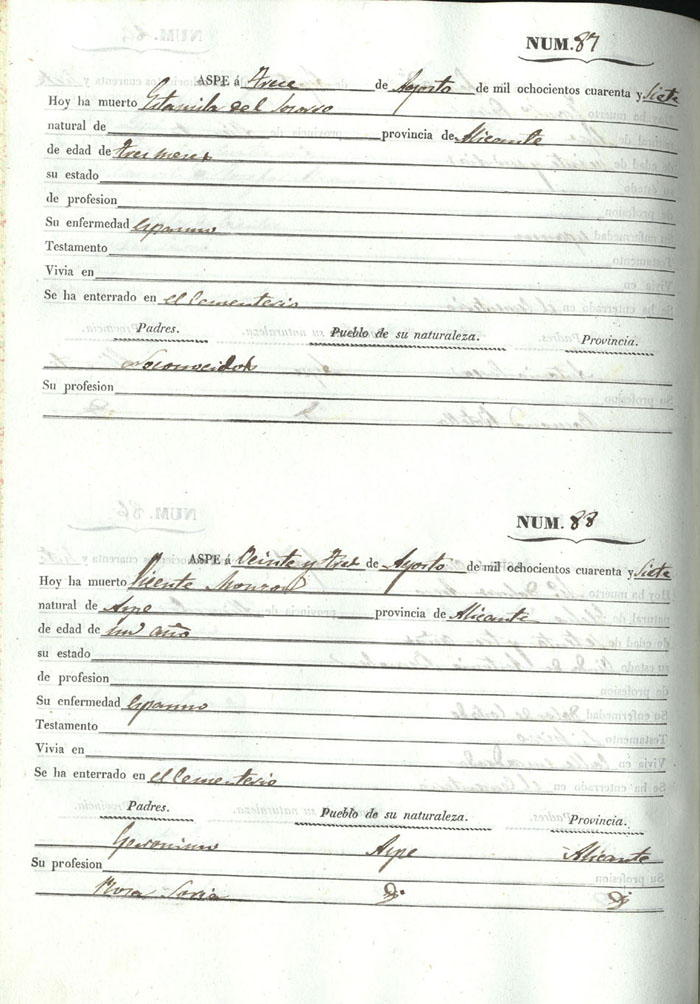 NUM. 87
ASPE á Trece de Agosto de mil ochocientos cuarenta y Siete
Hoy ha muerto Estanisla del Socorro
natural de provincia de Alicante
de edad de tres meses
su estado
de profesion
Su enfermedad espasmo
Testamento
Vivia en
Se ha enterrado en el Cementerio
Padres. Pueblo de su naturaleza. Provincia.
No conocidos
Su profesion
NUM. 88
ASPE á Veinte y tres de Agosto de mil ochocientos cuarenta y Siete
Hoy ha muerto Vicente
natural de Aspe provincia de Alicante
de edad de un año
su estado
de profesion
Su enfermedad espasmo
Testamento
Vivia en
Se ha enterrado en el Cementerio
Padres. Pueblo de su naturaleza. Provincia.
Geronimo Aspe Alicante
Su profesion
Rosa Soria D. D.